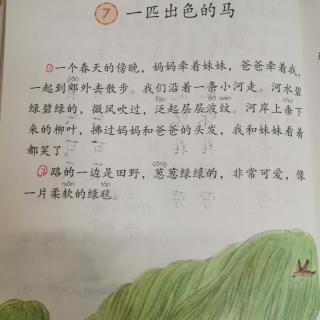 7 一匹出色的马
①一个春天的傍晚，妈妈牵着妹妹，爸爸牵着我，
jiāo
一起到郊外去散步。我们沿着一条小河走。河水碧
fàn bō wén chuí
绿碧绿的，微风吹过，泛起层层波纹。河岸上垂下
来的柳叶，拂过妈妈和爸爸的头发，我和妹妹看着
都笑了。
cōng
②路的一边是田野，葱葱绿绿的，非常可爱，像
ruǎn tǎn
一片柔软的绿毯。